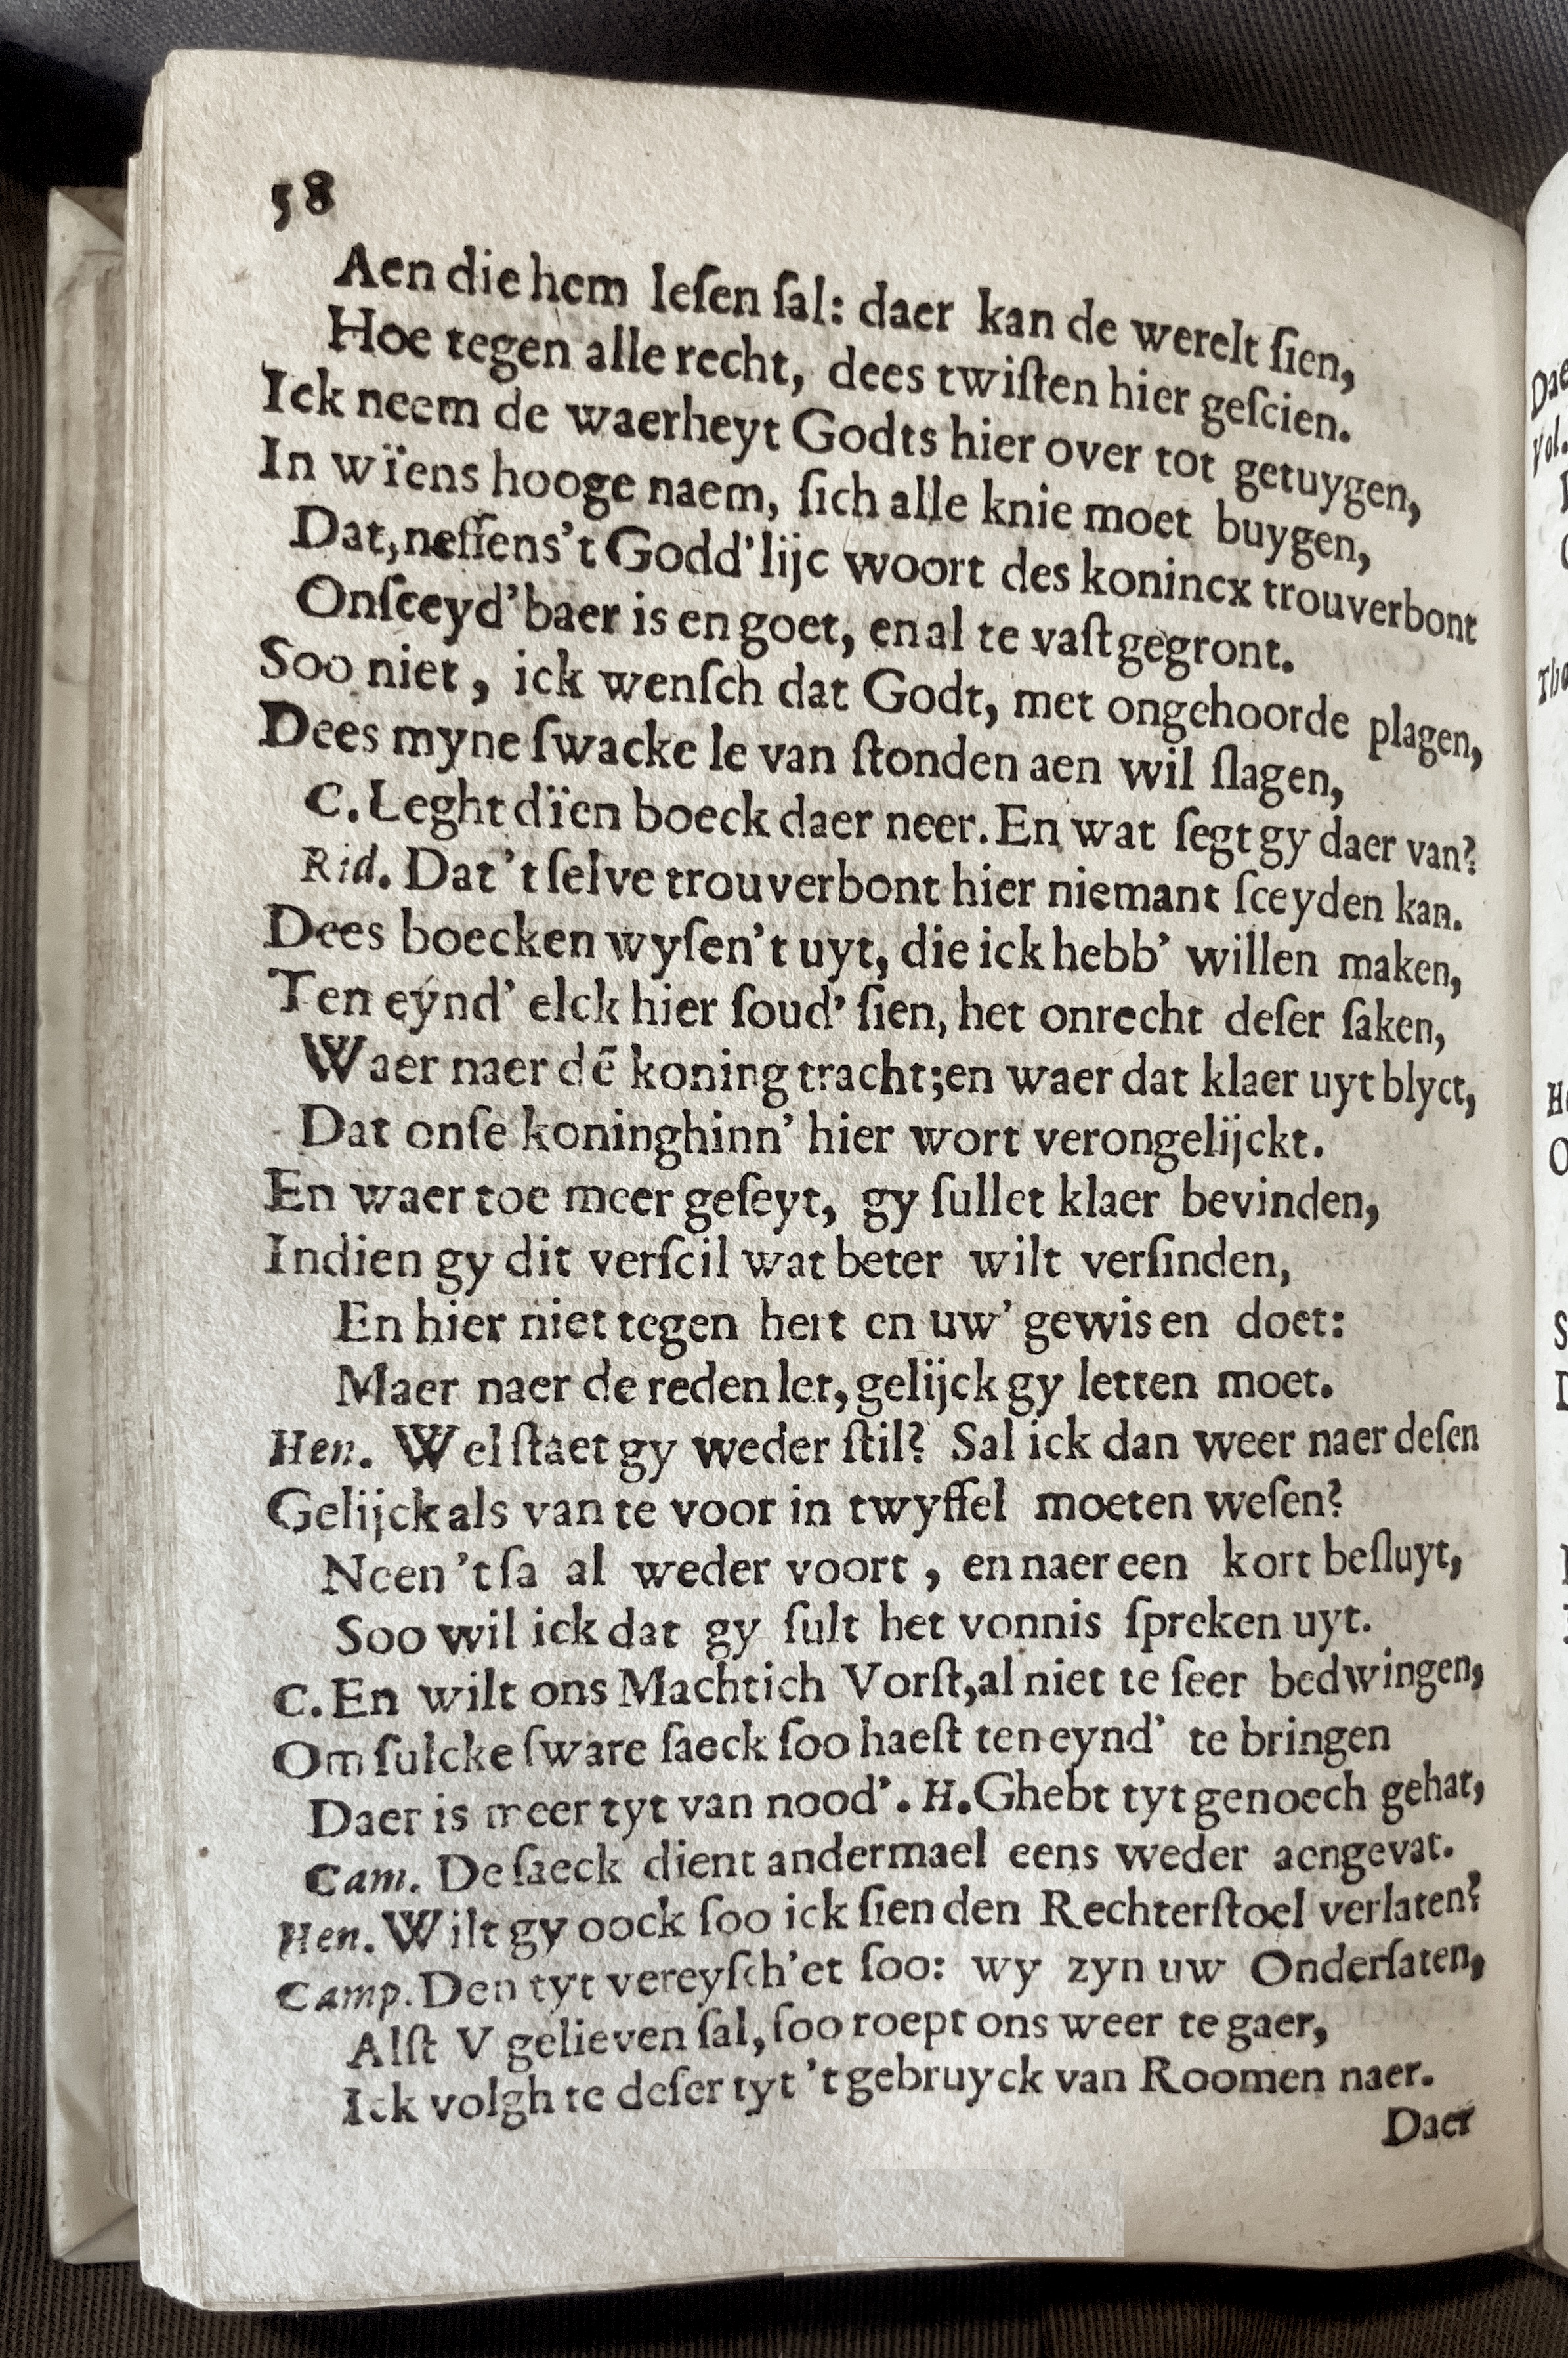 58
Aen die hem leſen ſal: daer kan de werelt ſien,
Hoe tegen alle recht, dees twiſten hier geſcien.
Ick neem de waerheyt Godts hier over tot getuygen,
In wïens hooge naem, ſich alle knie moet buygen,
Dat, neffens't Godd'lijc woort des konincx trouverbont
Onſceyd'baer is en goet, en al te vaſt gegront.
Soo niet, ick wenſch dat Godt, met ongehoorde plagen,
Dees myne ſwacke le van ſtonden aen wil ſlagen,
C. Leght dïen boeck daer neer. En wat ſegt gy daer van?
Rid. Dat 't ſelve trouverbont hier niemant ſceyden kan.
Dees boecken wyſen't uyt, die ick hebb' willen maken,
Ten eýnd' elck hier ſoud' ſien, het onrecht deſer ſaken,
Waer naer dē koning tracht; en waer dat klaer uyt blyct,
Dat onſe koninghinn' hier wort verongelijckt.
En waer toe meer geſeyt, gy ſullet klaer bevinden,
Indien gy dit verſcil wat beter wilt verſinden,
En hier niet tegen hert en uw' gewisen doet:
Maer naer de reden let, gelijck gy letten moet.
Hen. Wel ſtaet gy weder ſtil? Sal ick dan weer naer deſen
Gelijck als van te voor in twyffel moeten weſen?
Neen 't ſa al weder voort, en naer een kort beſluyt,
Soo wil ick dat gy ſult het vonnis ſpreken uyt.
C. En wilt ons Machtich Vorſt, al niet te ſeer bedwingen,
Om ſulcke ſware ſaeck ſoo haeſt ten eynd' te bringen
Daer is meer tyt van nood'. H. Ghebt tyt genoech gehat,
Cam. De ſaeck dient andermael eens weder aengevat.
Hen. Wilt gy oock ſoo ick ſien den Rechterſtoel verlaten?
Camp. Den tyt vereyſch'et ſoo: wy zyn uw Onderſaten,
Alſt V gelieven ſal, ſoo roept ons weer te gaer,
Ick volgh te deſer tyt 't gebruyck van Roomen naer.
Daer